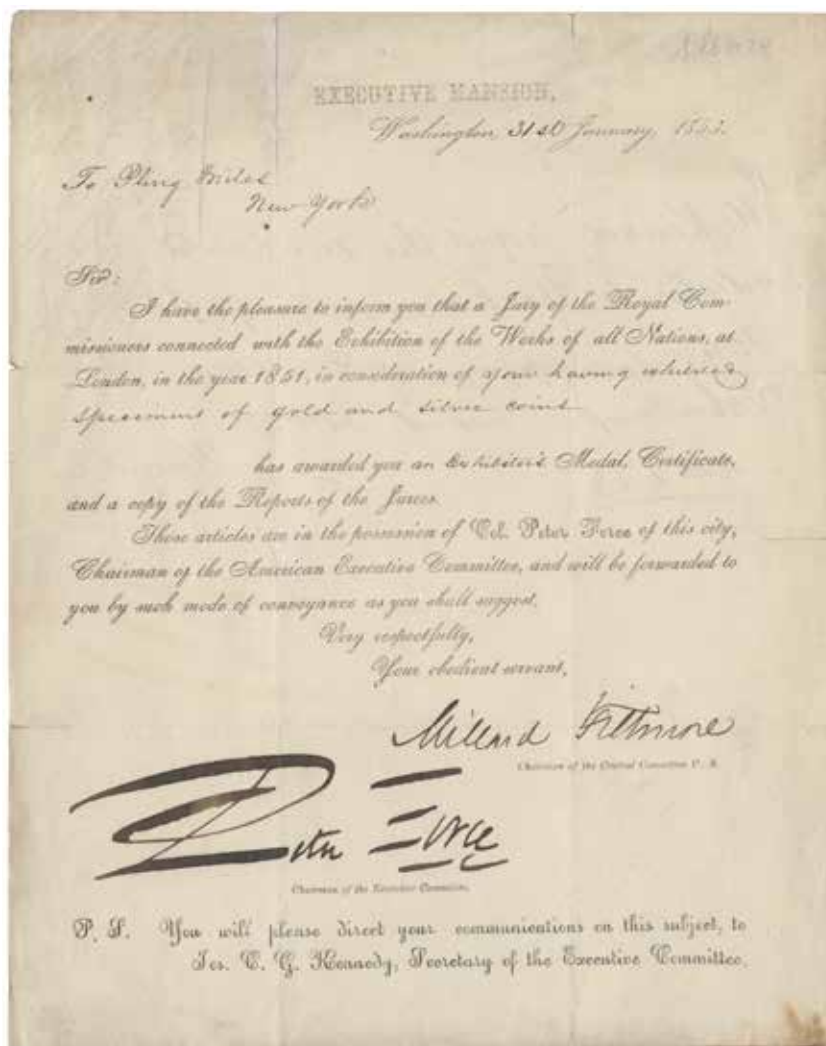 EXECUTIVE MANSION,
Washington 31st January, 1853.
To Pliny Miles
New York
Sir:
I have the pleasure to inform you that a Jury of the Royal Com-
missioners connected with the Exhibition of the Works of all Nations, at
London, in the year 1851, in consideration of your having exhibited
specimens of gold and silver coins
has awarded you an Exhibitor's Medal, Certificate,
and a copy of the Reports of the Juries.
These articles are in the possession of Col. Peter Force of this city,
Chairman of the American Executive Committee, and will be forwarded to
you by such mode of conveyance as you shall suggest.
Very respectfully,
Your obedient servant,
Millard Fillmore
Chairman of the Central Committee U. S.
Peter Force
Chairman of the Executive Committee.
P. S. You will please direct your communications on this subject, to
Jos. C. G. Kennedy, Secretary of the Executive Committee.